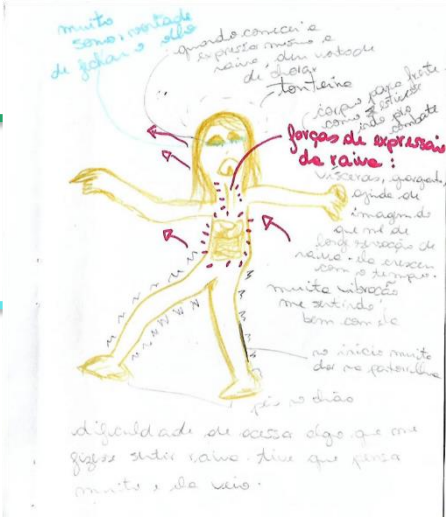 muito
sono, vontade
de fechar o olho
quando comecei a
expressar mesmo a
raiva, deu vontade
de chorar
tonteira
corpo para frente
como se estivesse
indo pro
combate
forças de expressão
da raiva:
vísceras, garganta
ainda de
imagem do
que me dê
sensação de
raiva. ela cresceu
com o tempo.
muita vibração
me sentindo
bem com ela
no início muita
dor na panturrilha
pés no chão
dificuldade de acessar algo que me
fizesse sentir raiva. tive que pensar
muito e ela veio.